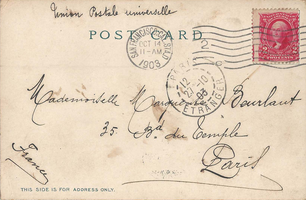 Union Postale universelle
POSTCARD
SAN FRANCISCO, CAL. STA. D
OCT 14
11-AM
1903
2
ETRANGER
Mademoiselle Marguerite Bourlaut
35 Bd. du Temple
Paris
France
THIS SIDE IS FOR ADDRESS ONLY.